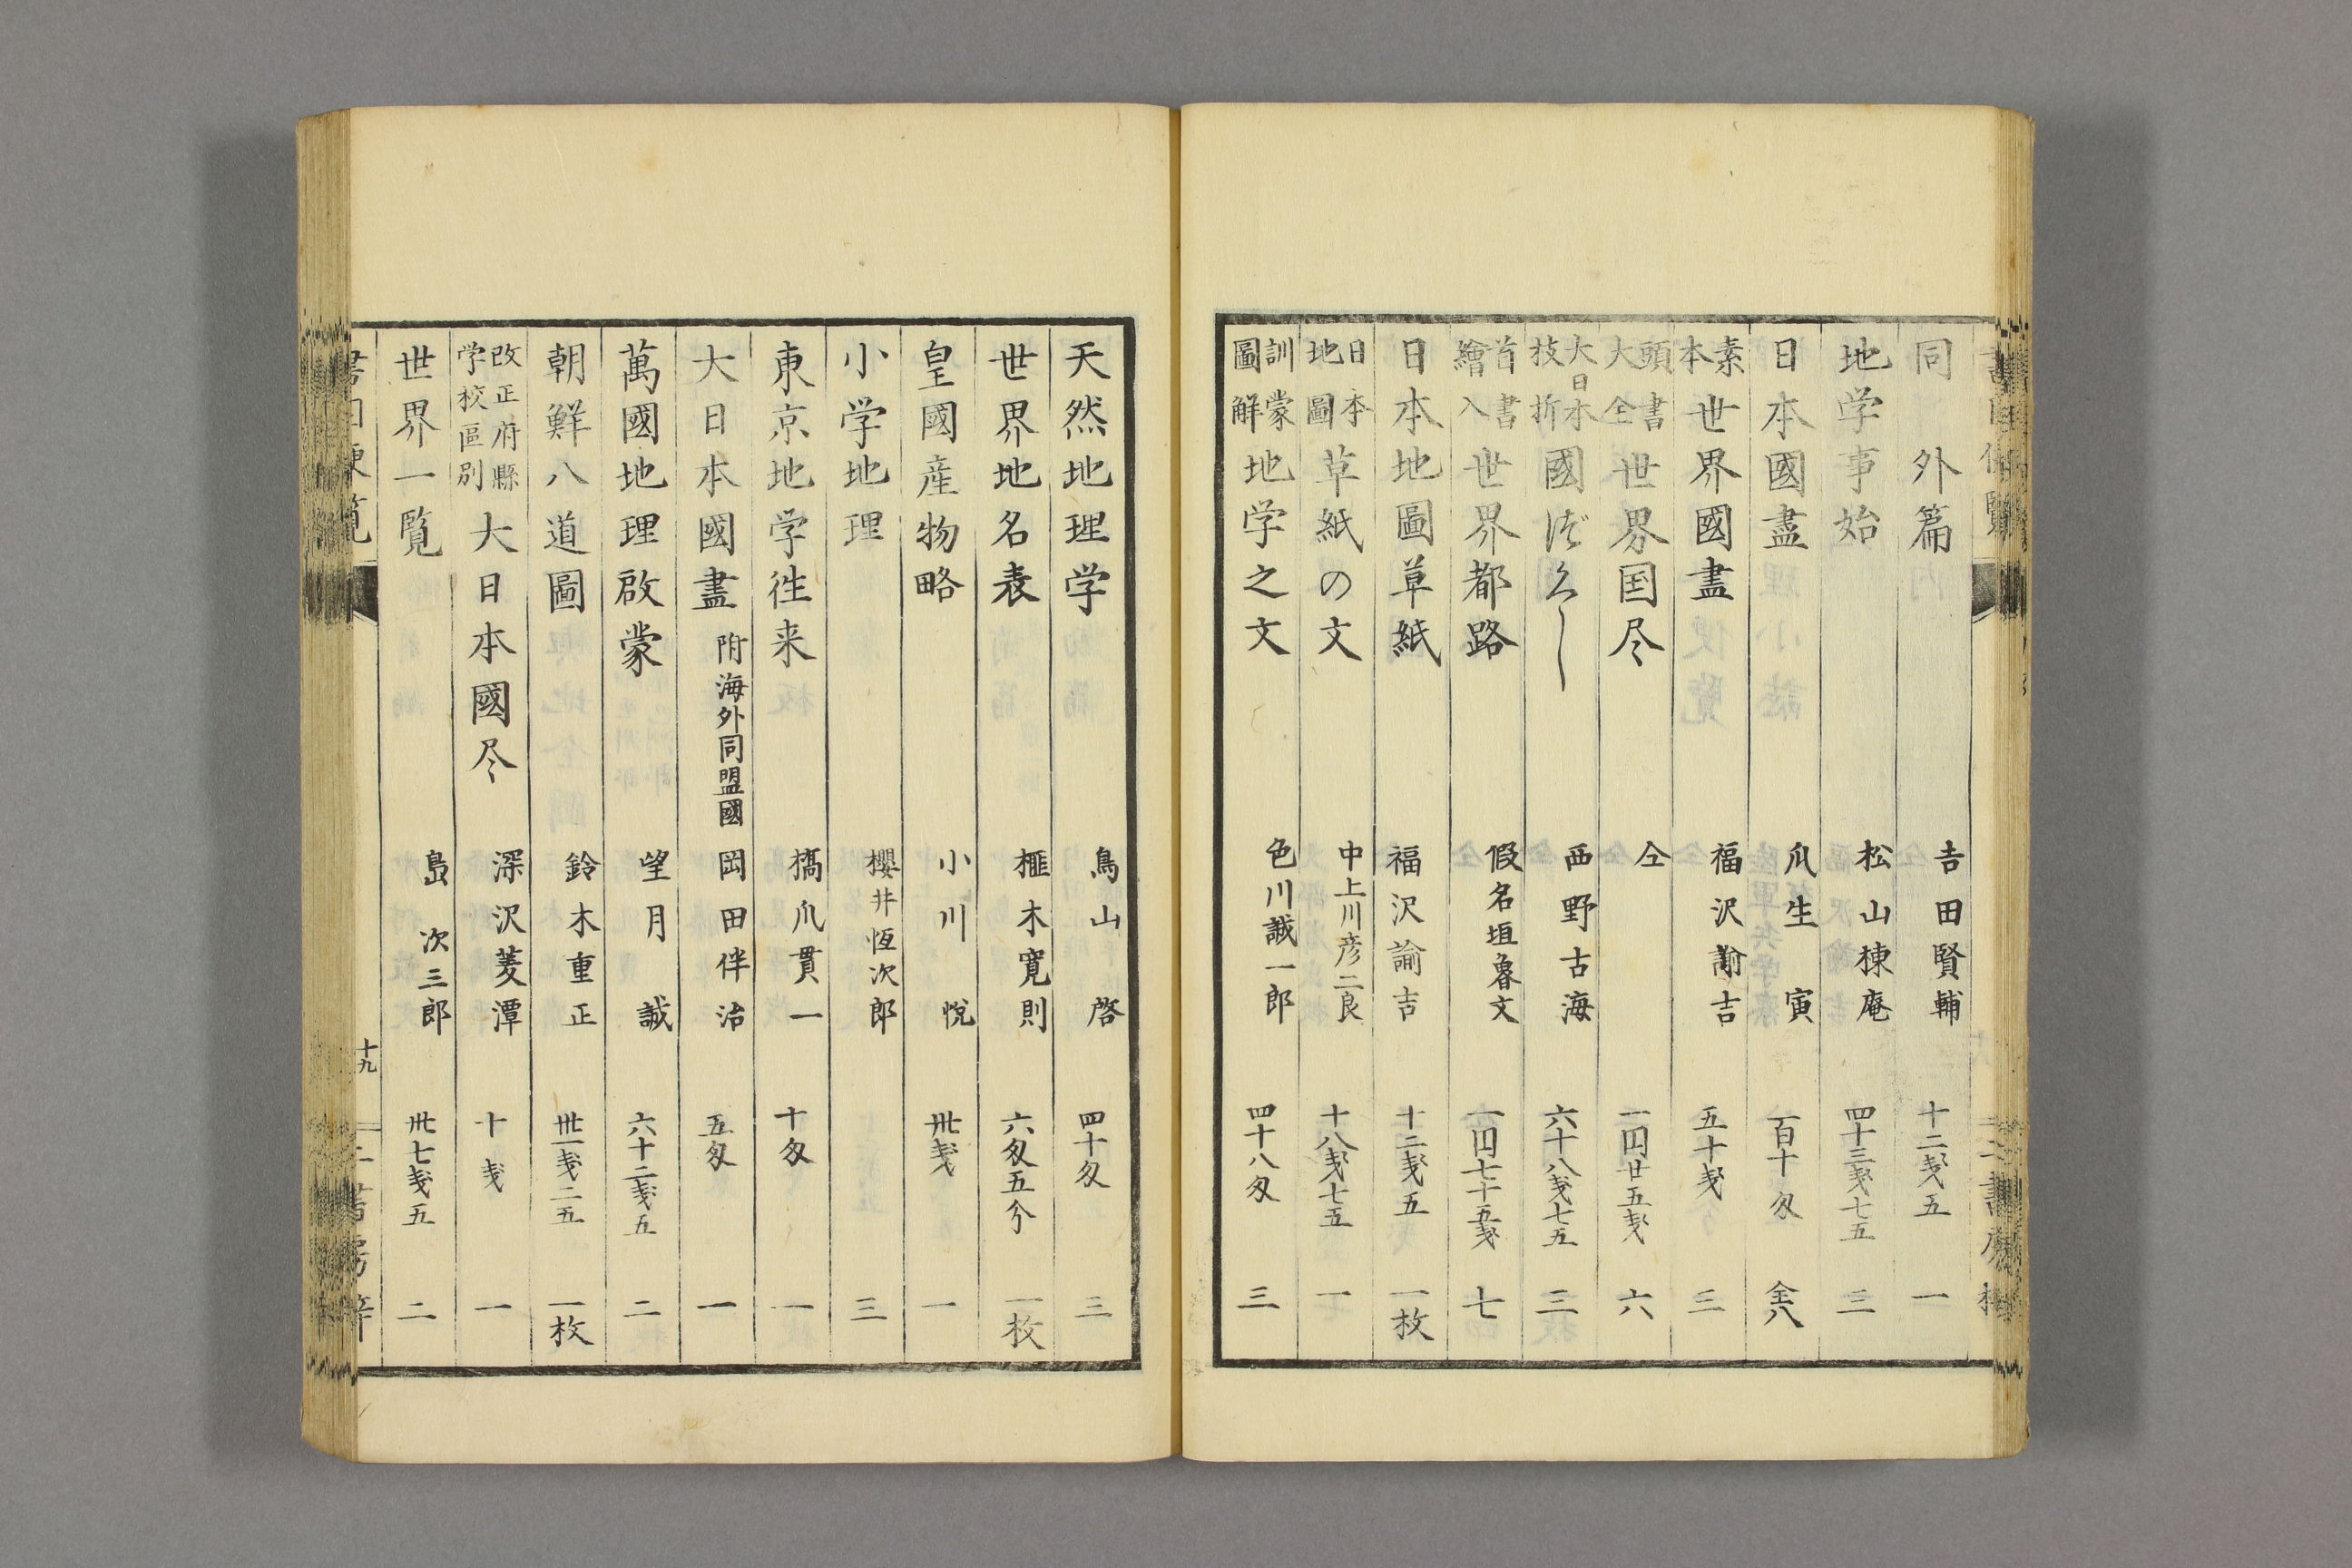 同　外篇　吉田賢輔　十二戋五　一
地学事始　松山棟庵　四十三戋七五　三
日本國盡　爪生　寅　百十匁　全八
素本　世界國盡　福沢諭吉　五十戋　三
頭書大全　世界国尽　仝　一円廿五戋　六
大日本枝折　國づくし　西野古海　六十八戋七五　三
首書繪入　世界都路　假名垣魯文　一円七十五戋　七
日本地圖草紙　福沢諭吉　十二戋五　一枚
日本地圖　草紙の文　中上川彦二良　十八戋七五　一
訓蒙圖解　地学之文　色川誠一郎　四十八匁　三
天然地理学　鳥山　啓　四十匁　三
世界地名表　榧木寛則　六匁五分　一枚
皇國産物略　小川　悦　卅戋　一
小学地理　櫻井恆次郎　三
東京地学往来　橋爪貫一　十匁　一
大日本國盡　附海外同盟國　岡田伴治　五匁　一
萬國地理啟蒙　望月　誠　六十二戋五　二
朝鮮八道圖　鈴木重正　卅一戋二五　一枚
改正府縣学校區別　大日本國尽　深沢菱潭　十戋　一
世界一覧　島　次三郎　卅七戋五　二
十九